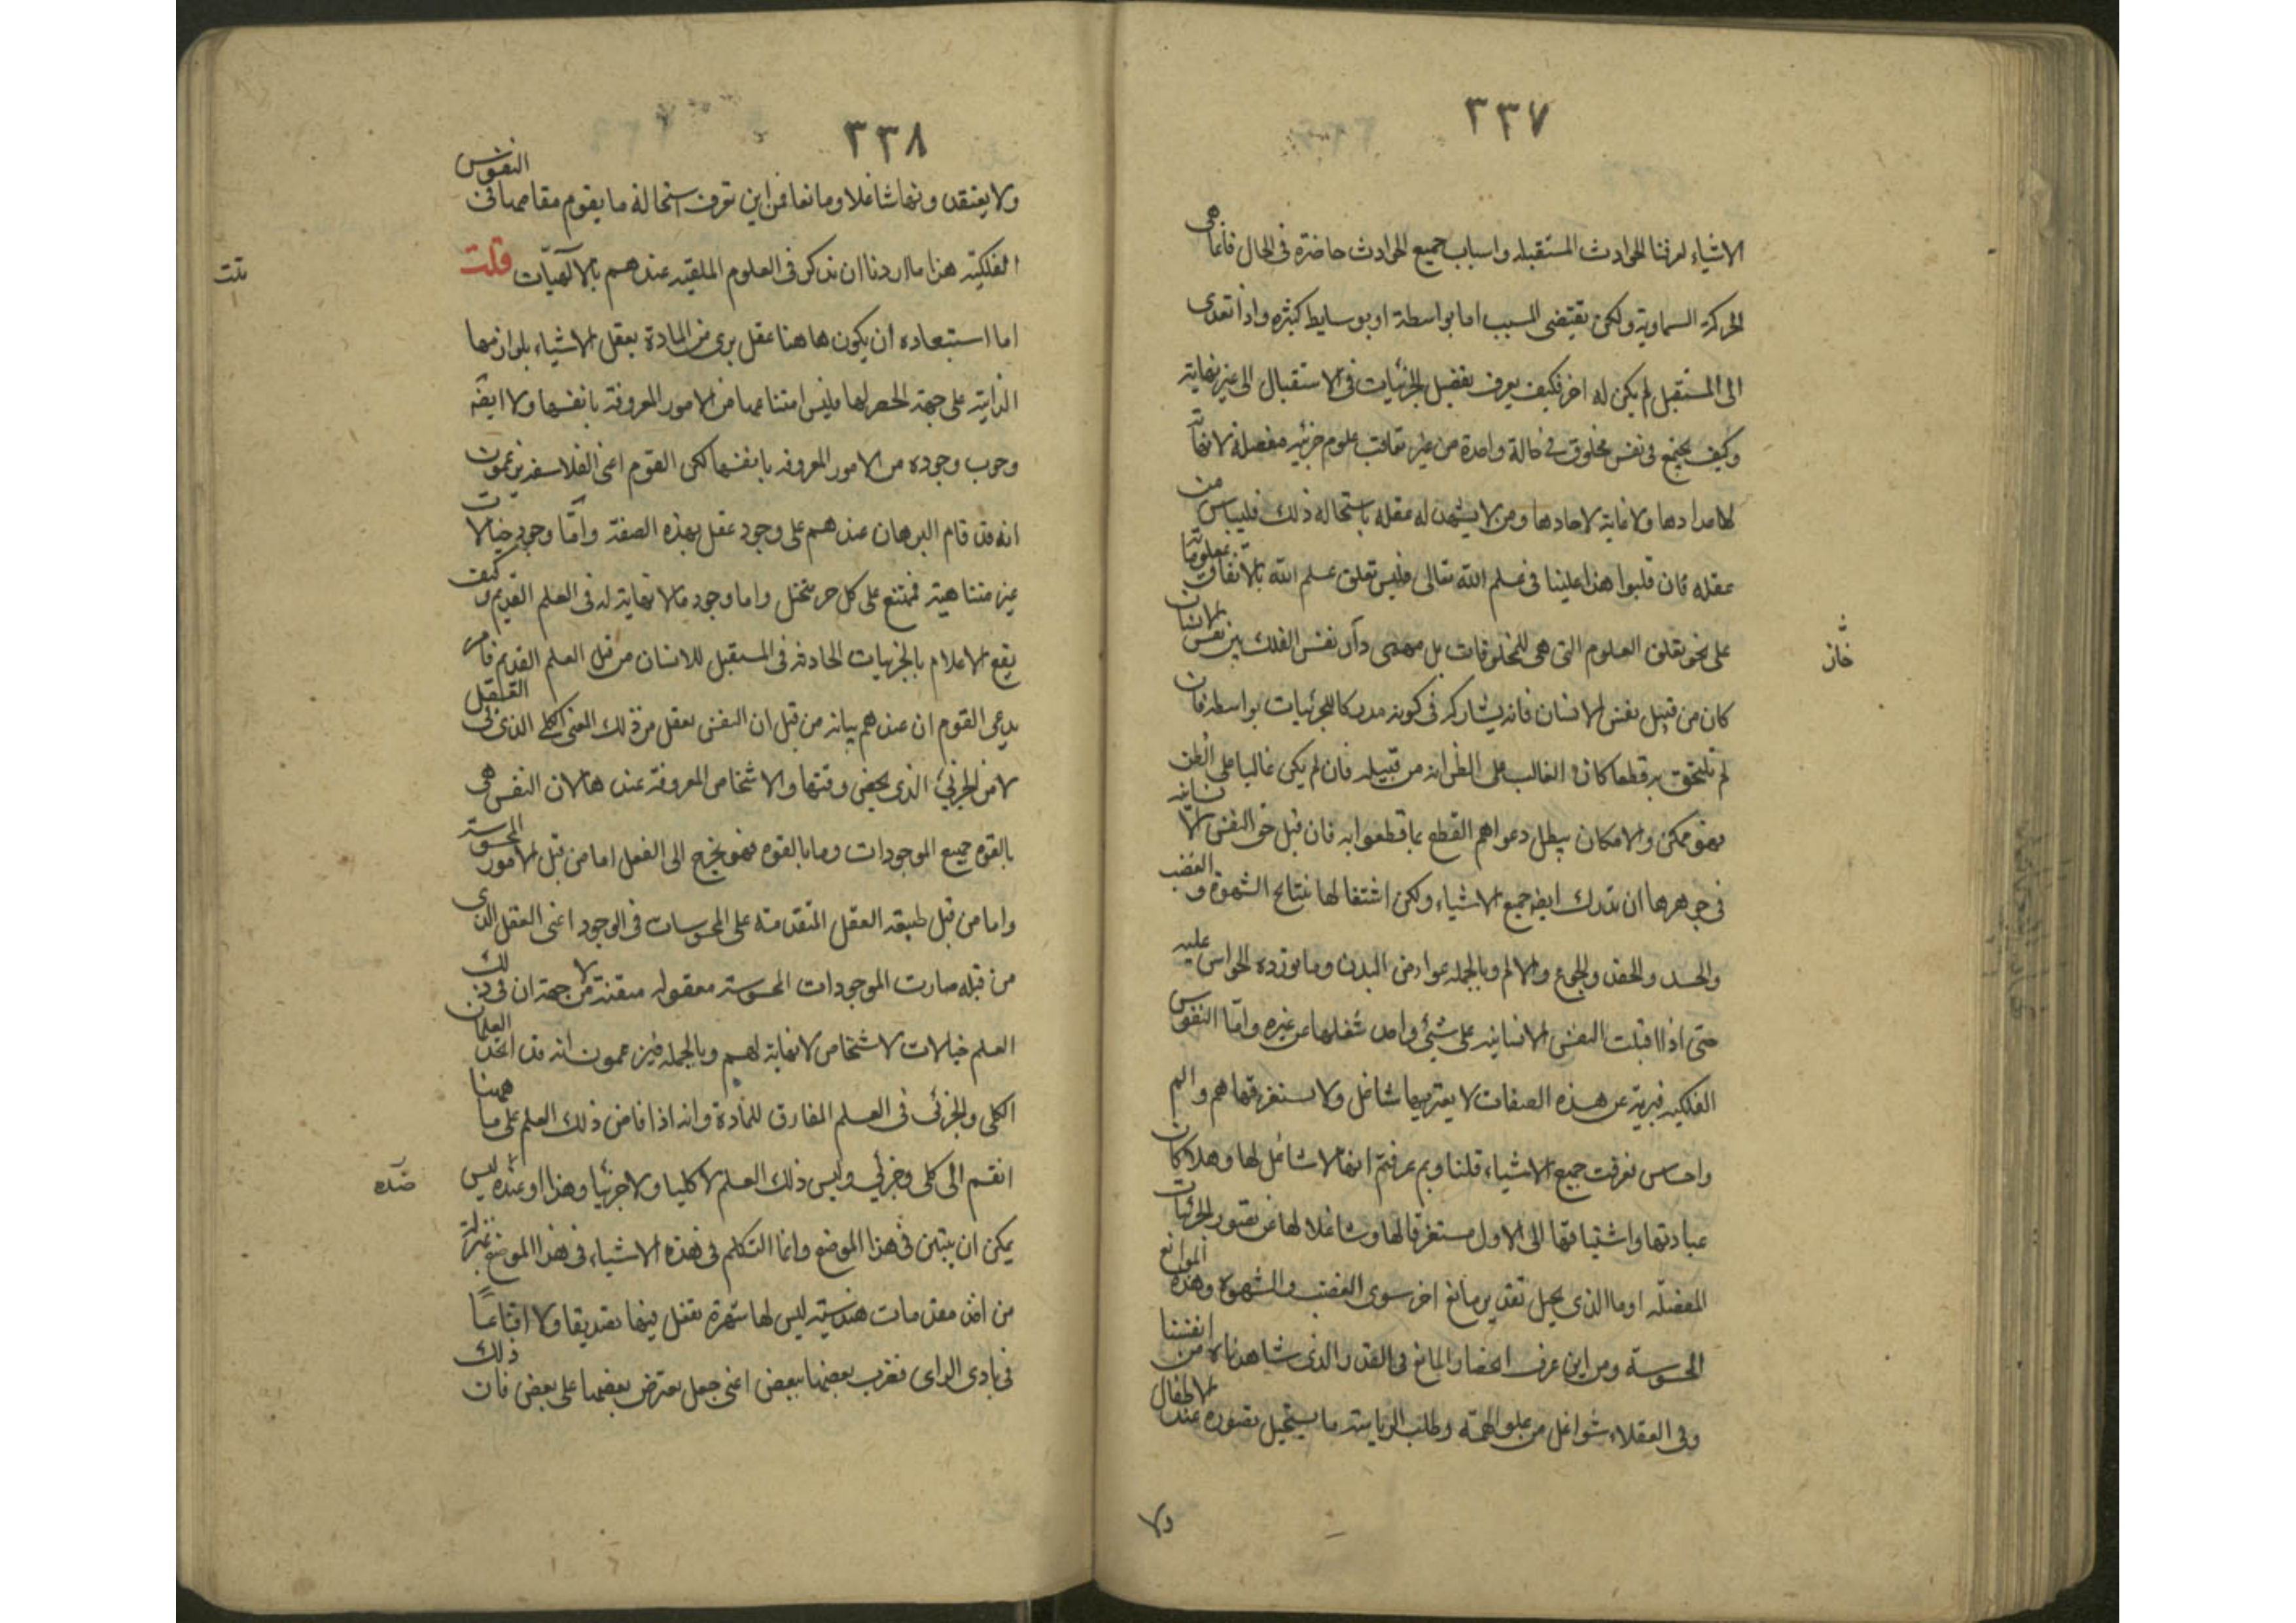 ٣٣٧
الاشياء لعرفنا الحوادث المستقبله واسباب جميع الحوادث حاضرة فى الحال فانها هى
الحركة السماوية ولكن يقتضى المسبب اما بواسطة او بوسايط كثيره واذا تعدى
الى المستقبل لم يكن له اخر فكيف يعرف تفصيل الجزئيات فى الاستقبال الى غير نهاية
وكيف يجتمع فى نفس مخلوق فى حالة واحدة من غير تعاقب علوم جزئيه مفصله لا نهاية
لاعدادها ولا غاية لاحادها ومن لا يشهد له عقله باستحالة ذلك فلييأس من
عقله فان قلبوا هذا علينا فى علم الله تعالى فليس تعلق علم الله بالاتفاق بمعلوماته
على نحو تعلق العلوم التى هى للمخلوقات بل مهمى دار نفس الفلك بين نفس الانسان
خاز
كان من قبيل نفس الانسان فانه يشاركه فى كونه مدركا للجزئيات بواسطه فان
لم يلتحق به قطعا كان الغالب على الظن انه من قبيله فان لم يكن غالبا على الظن
فهو ممكن والامكان يبطل دعواهم القطع بما قطعوا به فان قيل حق النفس الانسانيه
فى جوهرها ان تدرك ايضا جميع الاشياء ولكن اشتغالها بنتايج الشهوة والغضب
والحسد والحقد والجوع والالم وبالجمله عوارض البدن وما تورده الحواس عليه
حتى اذا اقبلت النفس الانسانيه على شيئ واحد شغلها عن غيره واما النفوس
الفلكيه فبرية عن هذه الصفات لا يعتريها شاغل ولا يستغرقها هم والم
واحساس فعرفت جميع الاشياء قلنا وبم عرفتم انها لا شاغل لها وهلا كان
عبادتها واشتياقها الى الاول مستغرقا لها وشاغلا لها عن تصور الجزئيات
المفصله او ما الذى يحيل تقدير مانع اخر سوى الغضب والشهوه وهذه الموانع
المحسوسة ومن اين عرف انحصار المانع فى القدر الذى شاهدناه من انفسنا
وفى العقلاء شواغل من علو الهمه وطلب الرياسة ما يستحيل تصوره عند الاطفال
ولا
٣٣٨
ولا يعتقدونها شاغلا ومانعا فمن اين تعرف استحالة ما يقوم مقامها فى النفوس
الفلكية هذا ما اردنا ان نذكر فى العلوم الملقبه عندهم بالالهيات قلت
تت
اما استبعاده ان يكون هاهنا عقل برى من المادة يعقل الاشياء بلوازمها
الذاتية على جهة الحصر لها فليس امتناعها من الامور المعروفة بانفسها ولا ايضا
وجوب وجوده من الامور المعروفه بانفسها لكن القوم اعنى الفلاسفه يزعمون
انه قد قام البرهان عندهم على وجود عقل بهذه الصفة واما وجود خيالات
غير متناهية فممتنع على كل جز متخيل واما وجود ما لا نهاية له فى العلم القديم وكيف
يقع الاعلام بالجزئيات الحادثه فى المستقبل للانسان من قبل العلم القديم فامر
يدعى القوم ان عندهم بيانه من قبل ان النفس تعقل من ذلك المعنى الكلى الذى فى العقل
لا من الجزئى الذى يخص وقتها والاشخاص المعروفة عندها لان النفس هى
بالقوة جميع الموجودات وما بالقوه فهو يخرج الى الفعل اما من قبل الامور المحسوسه
واما من قبل طبيعه العقل المتقدمة على المحسوسات فى الوجود اعنى العقل الذى
من قبله صارت الموجودات المحسوسة معقوله متقنة لا من جهة ان فى ذلك
العلم خيالات لاشخاص لا نهاية لهم وبالجمله فيزعمون انه قد اتحد العلمان
الكلى والجزئى فى العلم المفارق للمادة وانه اذا فاض ذلك العلم على ما ههنا
انقسم الى كلى وجزئى وليس ذلك العلم لا كليا ولا جزئيا وهذا او ليس
ضده
يمكن ان يتبين فى هذا الموضع وانما التكلم فى هذه الاشياء فى هذا الموضع بمنزلة
من اخذ مقدمات هندسية ليس لها شهرة تفعل فيها تصديقا ولا اقناعا
فى بادى الراى فضرب بعضها ببعض اعنى جعل يعترض بعضها على بعض فان ذلك